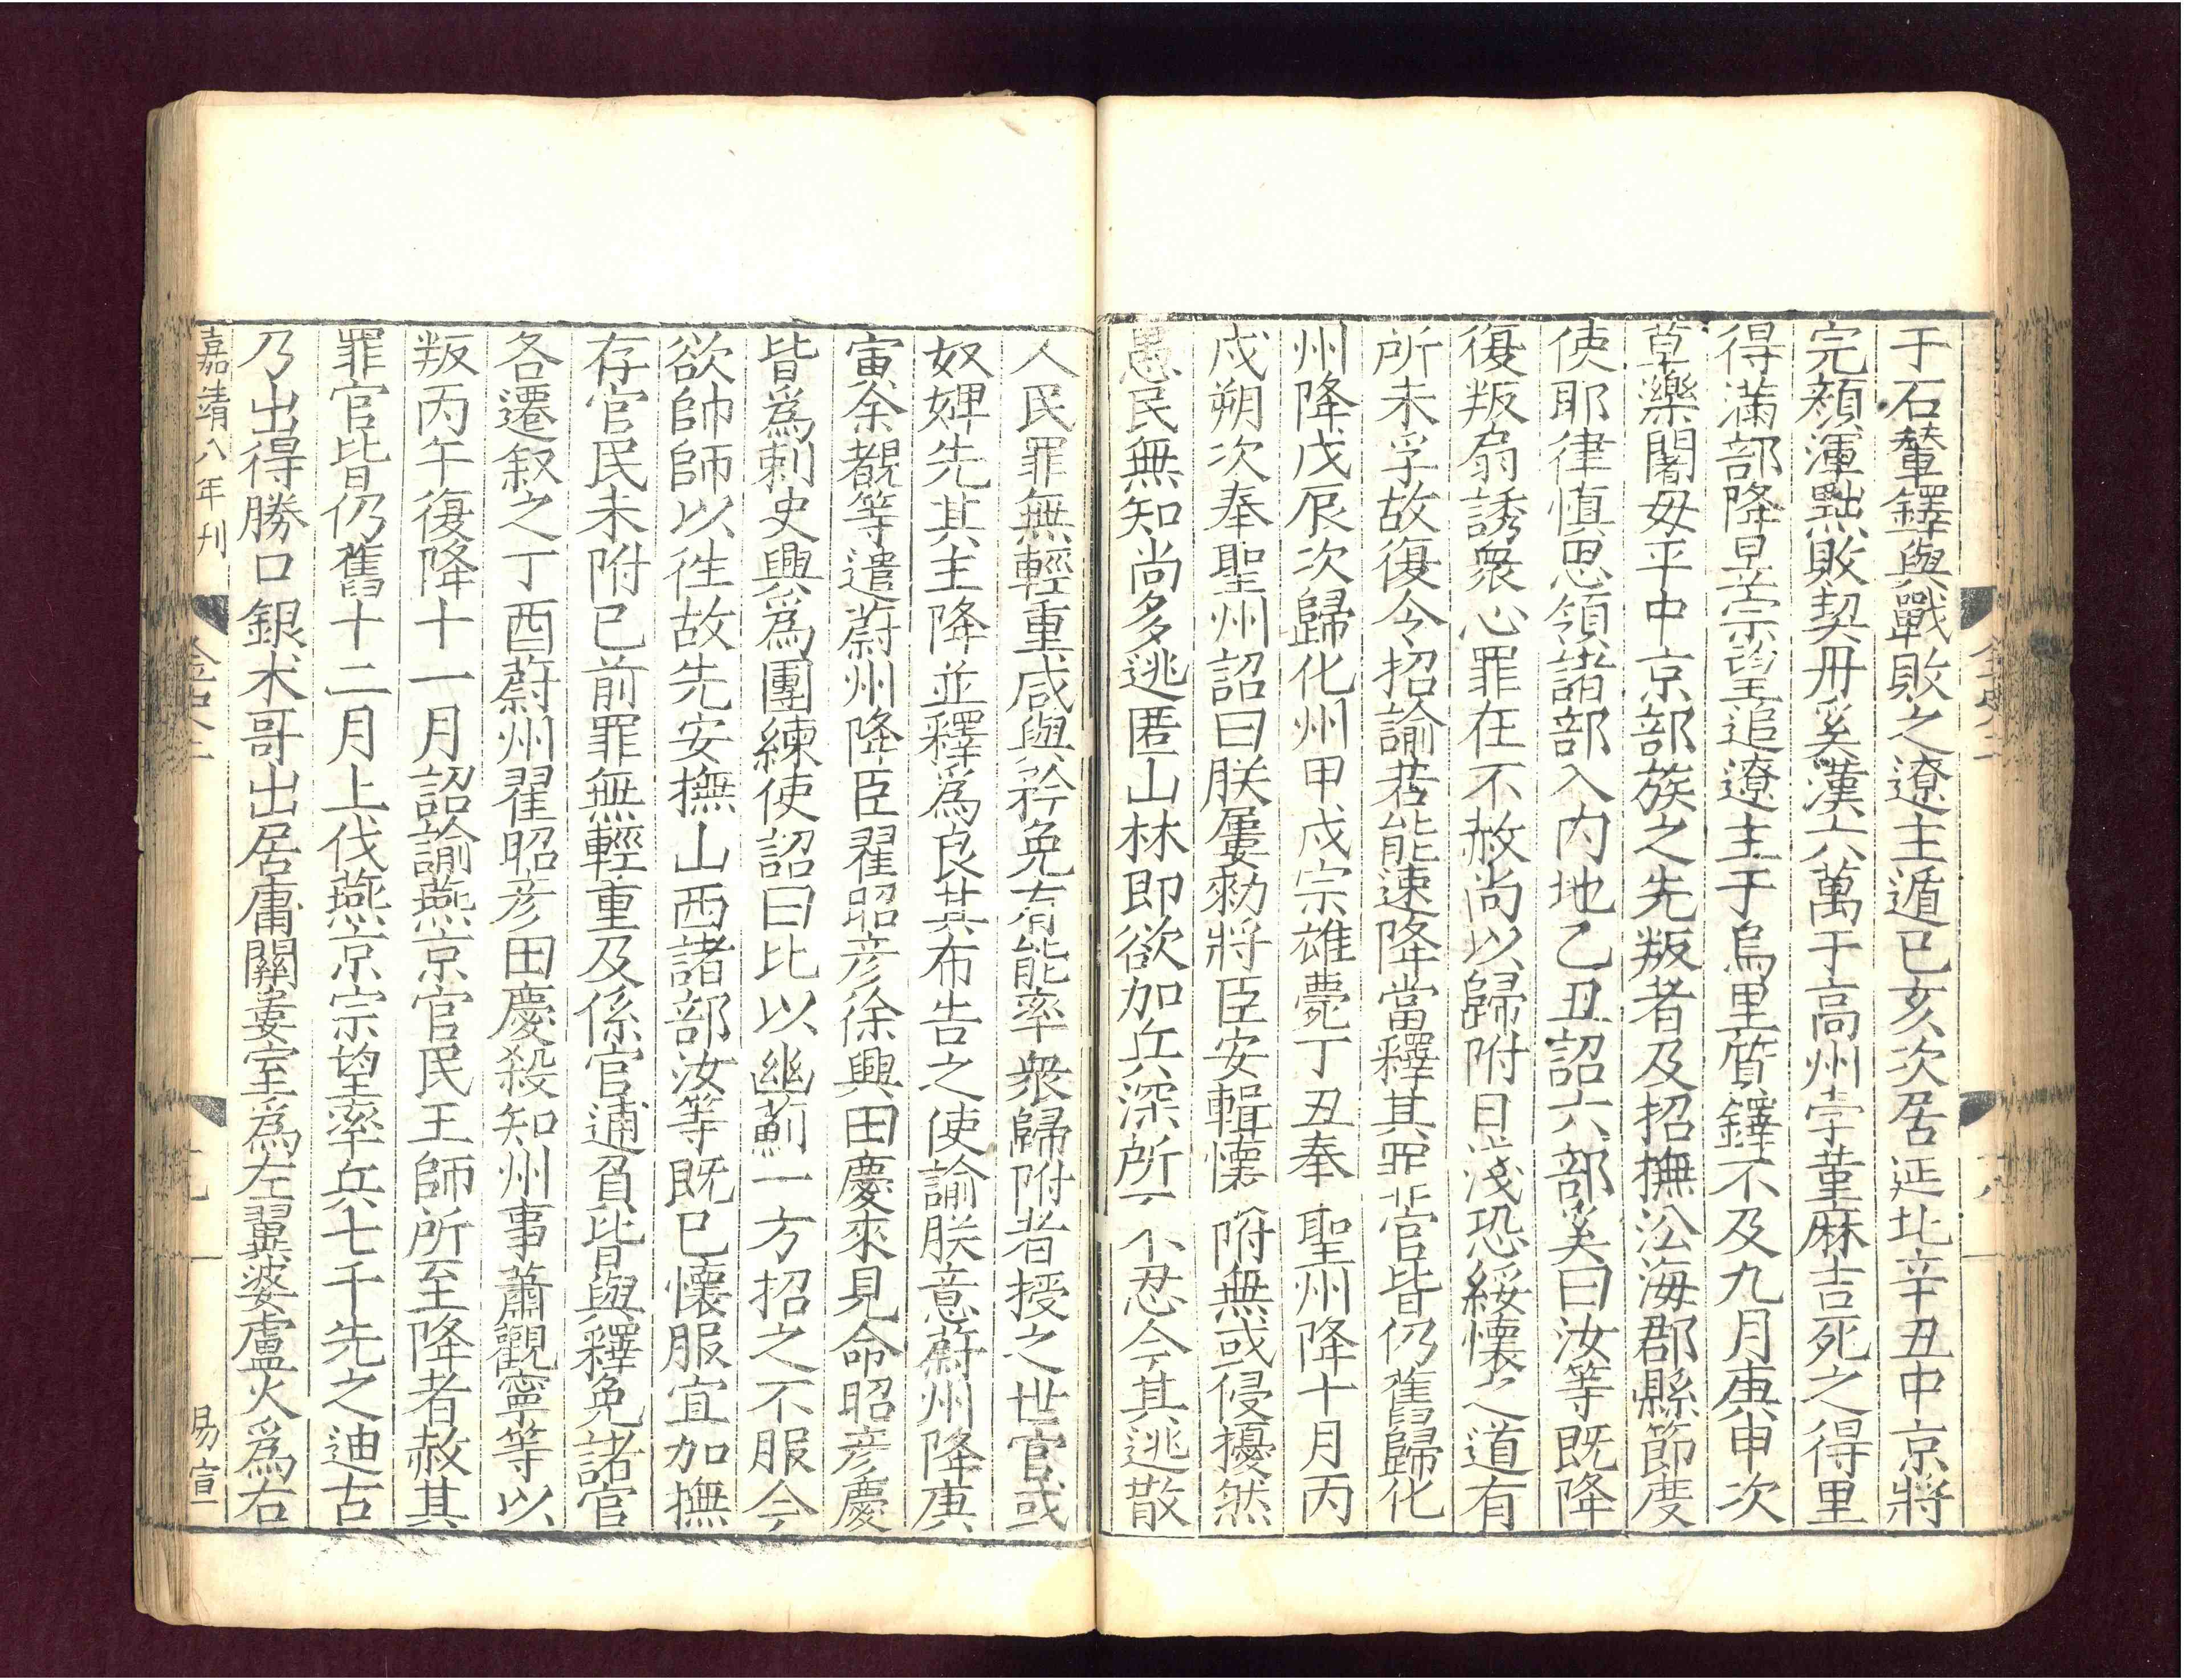 于石輦鐸與戰敗之遼主遁已亥次居延北辛丑中京將
完顏渾黜敗契丹奚漢六萬于高州孛菫麻吉死之得里
得滿部降旦宗望追遼主于烏里質鐸不及九月庚申次
草濼闍毋平中京部族之先叛者及招撫㳂海郡縣節度
使耶律慎思領諸部入内地乙丑詔六部奚曰汝等既降
復叛扇誘衆心罪在不赦尚以歸附日淺恐綏懷之道有
所未孚故復令招諭若能速降當釋其罪官皆仍舊歸化
州降戊辰次歸化州甲戌宗雄薨丁丑奉聖州降十月丙
戌朔次奉聖州詔曰朕屢勑將臣安輯懷附無或侵擾然
愚民無知尚多逃匿山林即欲加兵深所不忍今其逃散
人民罪無輕重咸與矜免有能率衆歸附者授之世官或
奴婢先其主降並釋爲良其布告之使諭朕意蔚州降庚
寅余覩等遣蔚州降臣翟昭彦徐興田慶來見命昭彦慶
皆爲剌史興爲團練使詔曰比以幽薊一方招之不服今
欲帥師以徃故先安撫山西諸部汝等既已懷服宜加撫
存官民未附已前罪無輕重及係官逋負皆與釋免諸官
各遷叙之丁酉蔚州翟昭彦田慶殺知州事蕭觀寧等以
叛丙午復降十一月詔諭燕京官民王師所至降者赦其
罪官皆仍舊十二月上伐燕京宗望率兵七千先之迪古
乃出得勝口銀术哥出居庸關婁室爲左翼婆盧火爲右
嘉靖八年刊 金史二 易宣